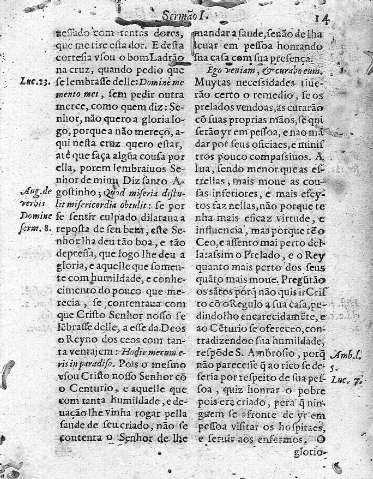 Sermão I.
14
nessado com tantas dores,
que me tire esta dor. E desta
cortesia vsou o bom Ladrão
na cruz, quando pedio que
se lembrasse delle: Domine me
Luc. 23.
mento mei, sem pedir outra
merce, como quem diz: Se-
nhor, não quero a gloria lo-
go, porque a não mereço, a-
qui nesta cruz quero estar,
até que faça algũa cousa por
ella, porem lembraiuos Se-
nhor de mim. Diz santo A-
gostinho; Quod miseria distu-
Aug. de
verbis
Domine
serm. 8.
lit misericordia obtulit: se por
se sentir culpado dilataua a
reposta de seu bem, este Se-
nhor lha deu tão boa, e tão
depressa, que logo lhe deu a
gloria, e aquelle que somen-
te com humildade, e conhe-
cimento do pouco que me-
recia, se contentaua com
que Cristo Senhor nosso se
lẽbrasse delle, a esse da Deos
o Reyno dos ceos com tan-
ta ventajem: Hodie mecum e-
ris in paradiso. Pois o mesmo
vsou Cristo nosso Senhor cõ
o Centurio, e aquelle que
com tanta humildade, e de-
uação lhe vinha rogar pella
saude de seu criado, não se
contenta o Senhor de lhe
mandar a saude, senão de lha
leuar em pessoa honrando
sua casa com sua presença.
Ego veniam, & curabo eum.
Muytas necessidades tiue-
rão certo o remedio, se os
prelados vendoas, as curarão
cõ suas proprias mãos, se qui
serão yr em pessoa, e nao mã
dar por seus officiaes, e minis
tros pouco compassiuos. A
lua, sendo menor que as es-
trellas, mais moue as cou-
sas inferiores, e mais effey-
tos faz nellas, não porque te
nha mais eficaz virtude, e
influencia, mas porque tẽ o
Ceo, e assento mai perto del-
la: assim o Prelado, e o Rey
quanto mais perto dos seus
quãto mais moue. Pregũtão
os sãtos porq̃ não quis ir Cris
to cõ o Regulo a sua casa, pe-
dindolho encarecidamẽte, e
ao Cẽturio se offereceo, con-
tradizendoo sua humildade,
respõde S. Ambrosio, porq̃
Amb. l.
5.
não parecesse q̃ ao rico se de-
seria por respeito de sua pes-
Luc. 7.
soa, quiz honrar o pobre
pois era criado, pera q̃ nin-
guem se afronte de yr em
pessoa visitar os hospitaes,
e seruir aos enfermos. O
glorio-